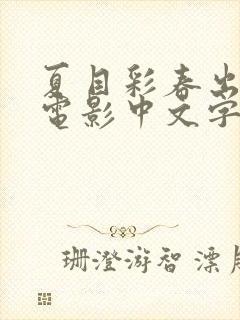 夏目彩春出
電影中文字
珊澄游智 漂